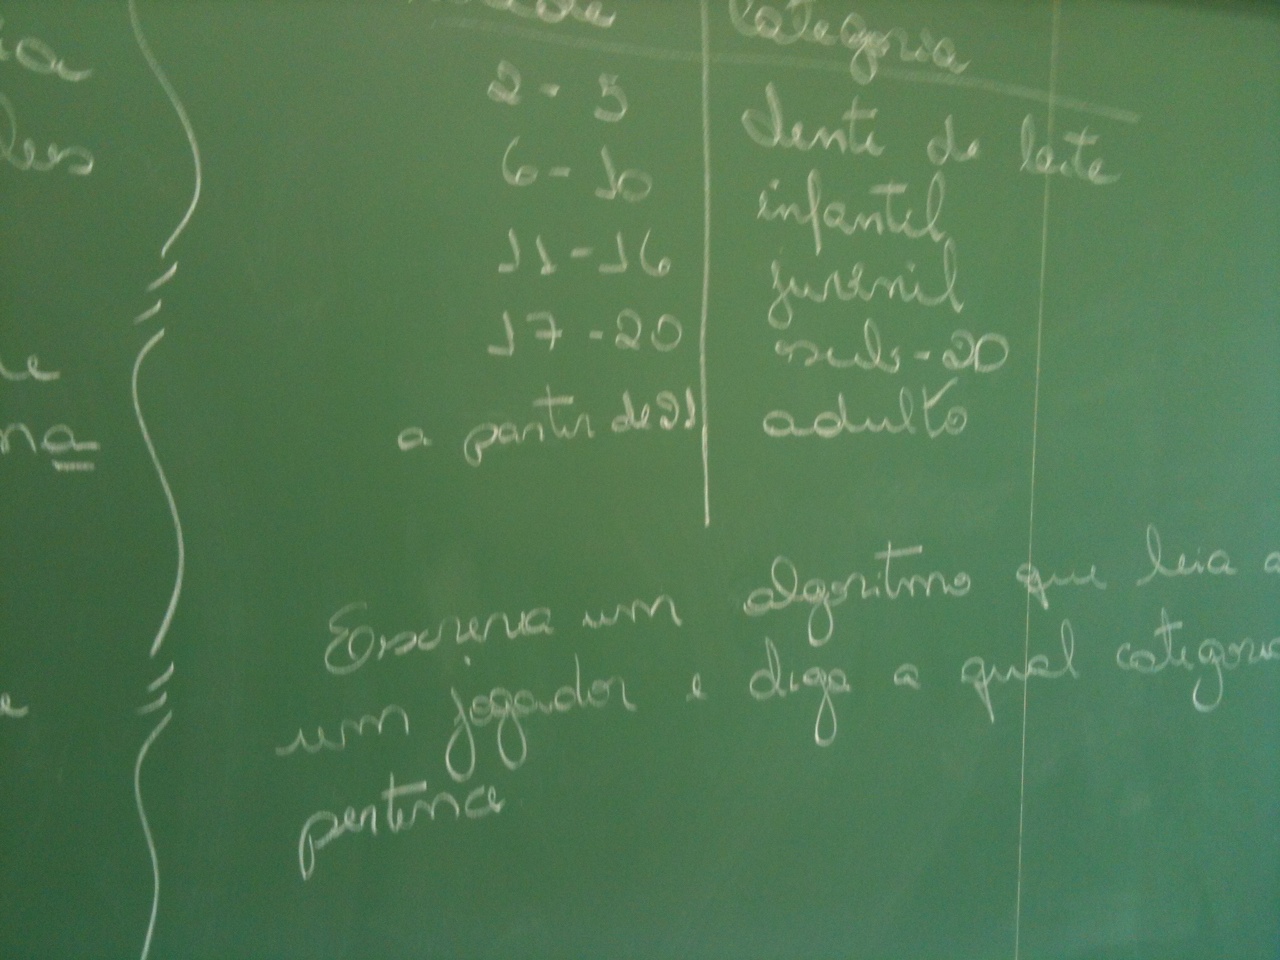 Categoria
2 - 5 dente de leite
6 - 10 infantil
11 - 16 juvenil
17 - 20 sub - 20
a partir de 21 adulto
Escreva um algoritmo que leia a
um jogador e diga a qual categoria
pertence